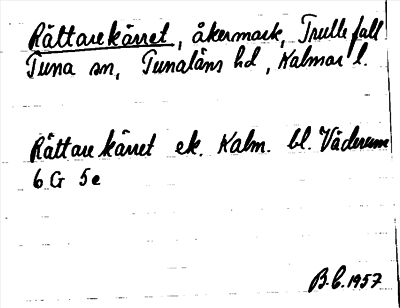 Rättarekärret, åkermark, Trullefall
Tuna sn, Tunaläns hd, Kalmar l.
Rättarekärret ek. Kalm. bl. Väderum
6 G 5e
B.C. 1957